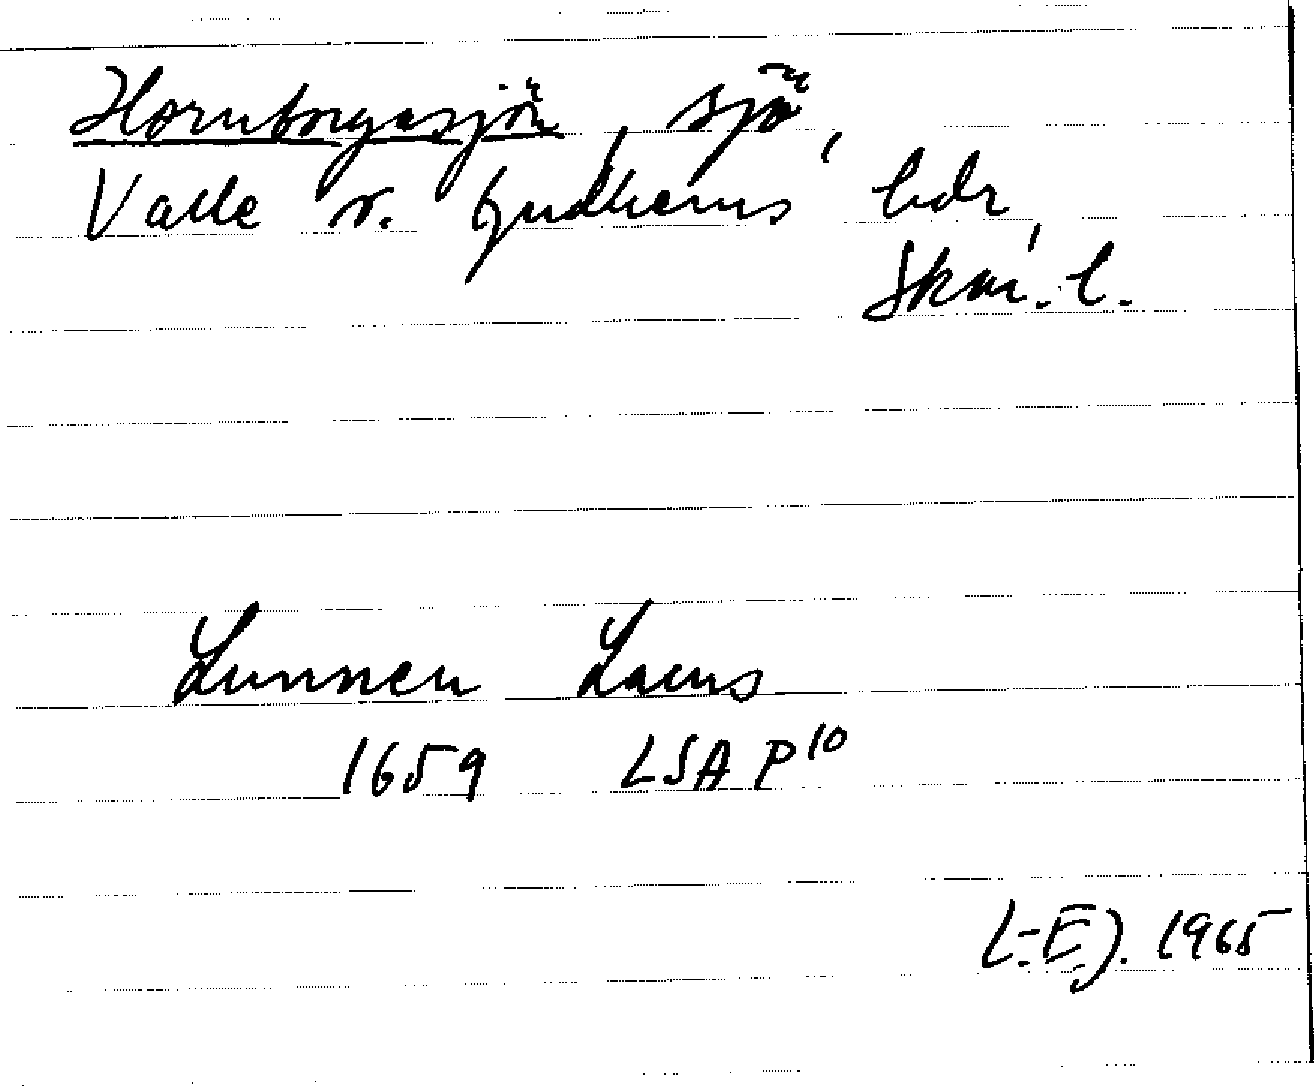 Hornborgasjön, sjö,
Valle o. Gudhems hdr,
Skar. l.
Lunnen Lacus
1659 LSA P10
L-EJ. 1965